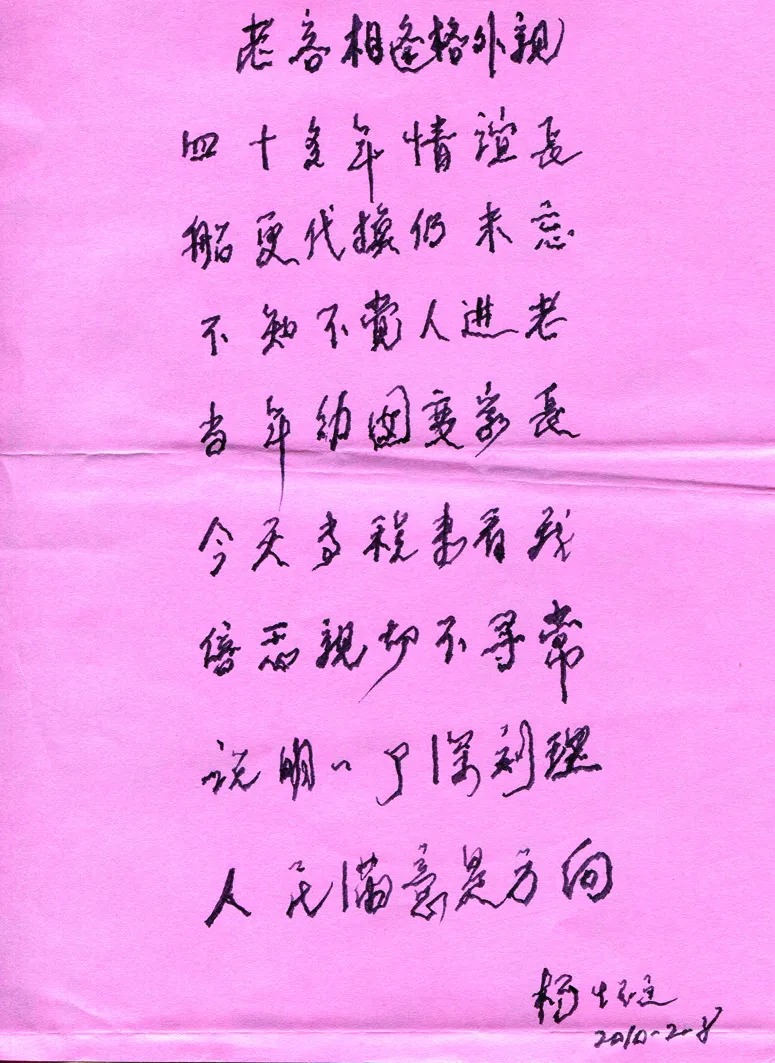 老客相逢格外親
四十多年情誼長
船更代換仍未忘
不知不覺人进老
当年幼囡变家長
今天专程来看我
倍感親切不寻常
说明一个深刻理
人民满意是方向
杨
2010-2-8